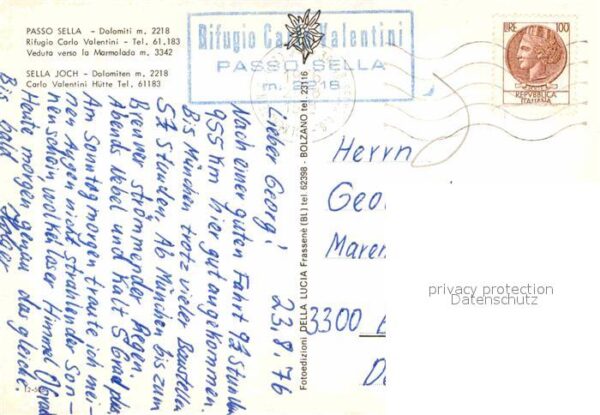 PASSO SELLA - Dolomiti m. 2218
Rifugio Carlo Valentini - Tel. 61.183
Veduta verso la Marmolada m. 3342
SELLA JOCH - Dolomiten m. 2218
Carlo Valentini Hütte Tel. 61183
Rifugio Valentini
PASSO SELLA
m. 2218
LIRE 100
REPVBBLICA
ITALIANA
Fotoedizioni DELLA LUCIA Frassenè (BL) tel. 62398 - BOLZANO tel. 23116
23.8.76
Lieber Georg!
Nach einer guten Fahrt 9½ Stunden
955 km hier gut angekommen.
Bis München trotz vieler Baustellen
5½ Stunden. Ab München bis zum
Brenner strömmender Regen.
Abends Nebel und Kalt 5 Grad plus.
Am Sonntagmorgen traute ich mei-
nen Augen nicht strahlender Son-
nenschein, wolkenloser Himmel Grad
Heute morgen genau das gleiche
Bis bald
Holger
Herrn
Geo
Maren
3300
privacy protection
Datenschutz